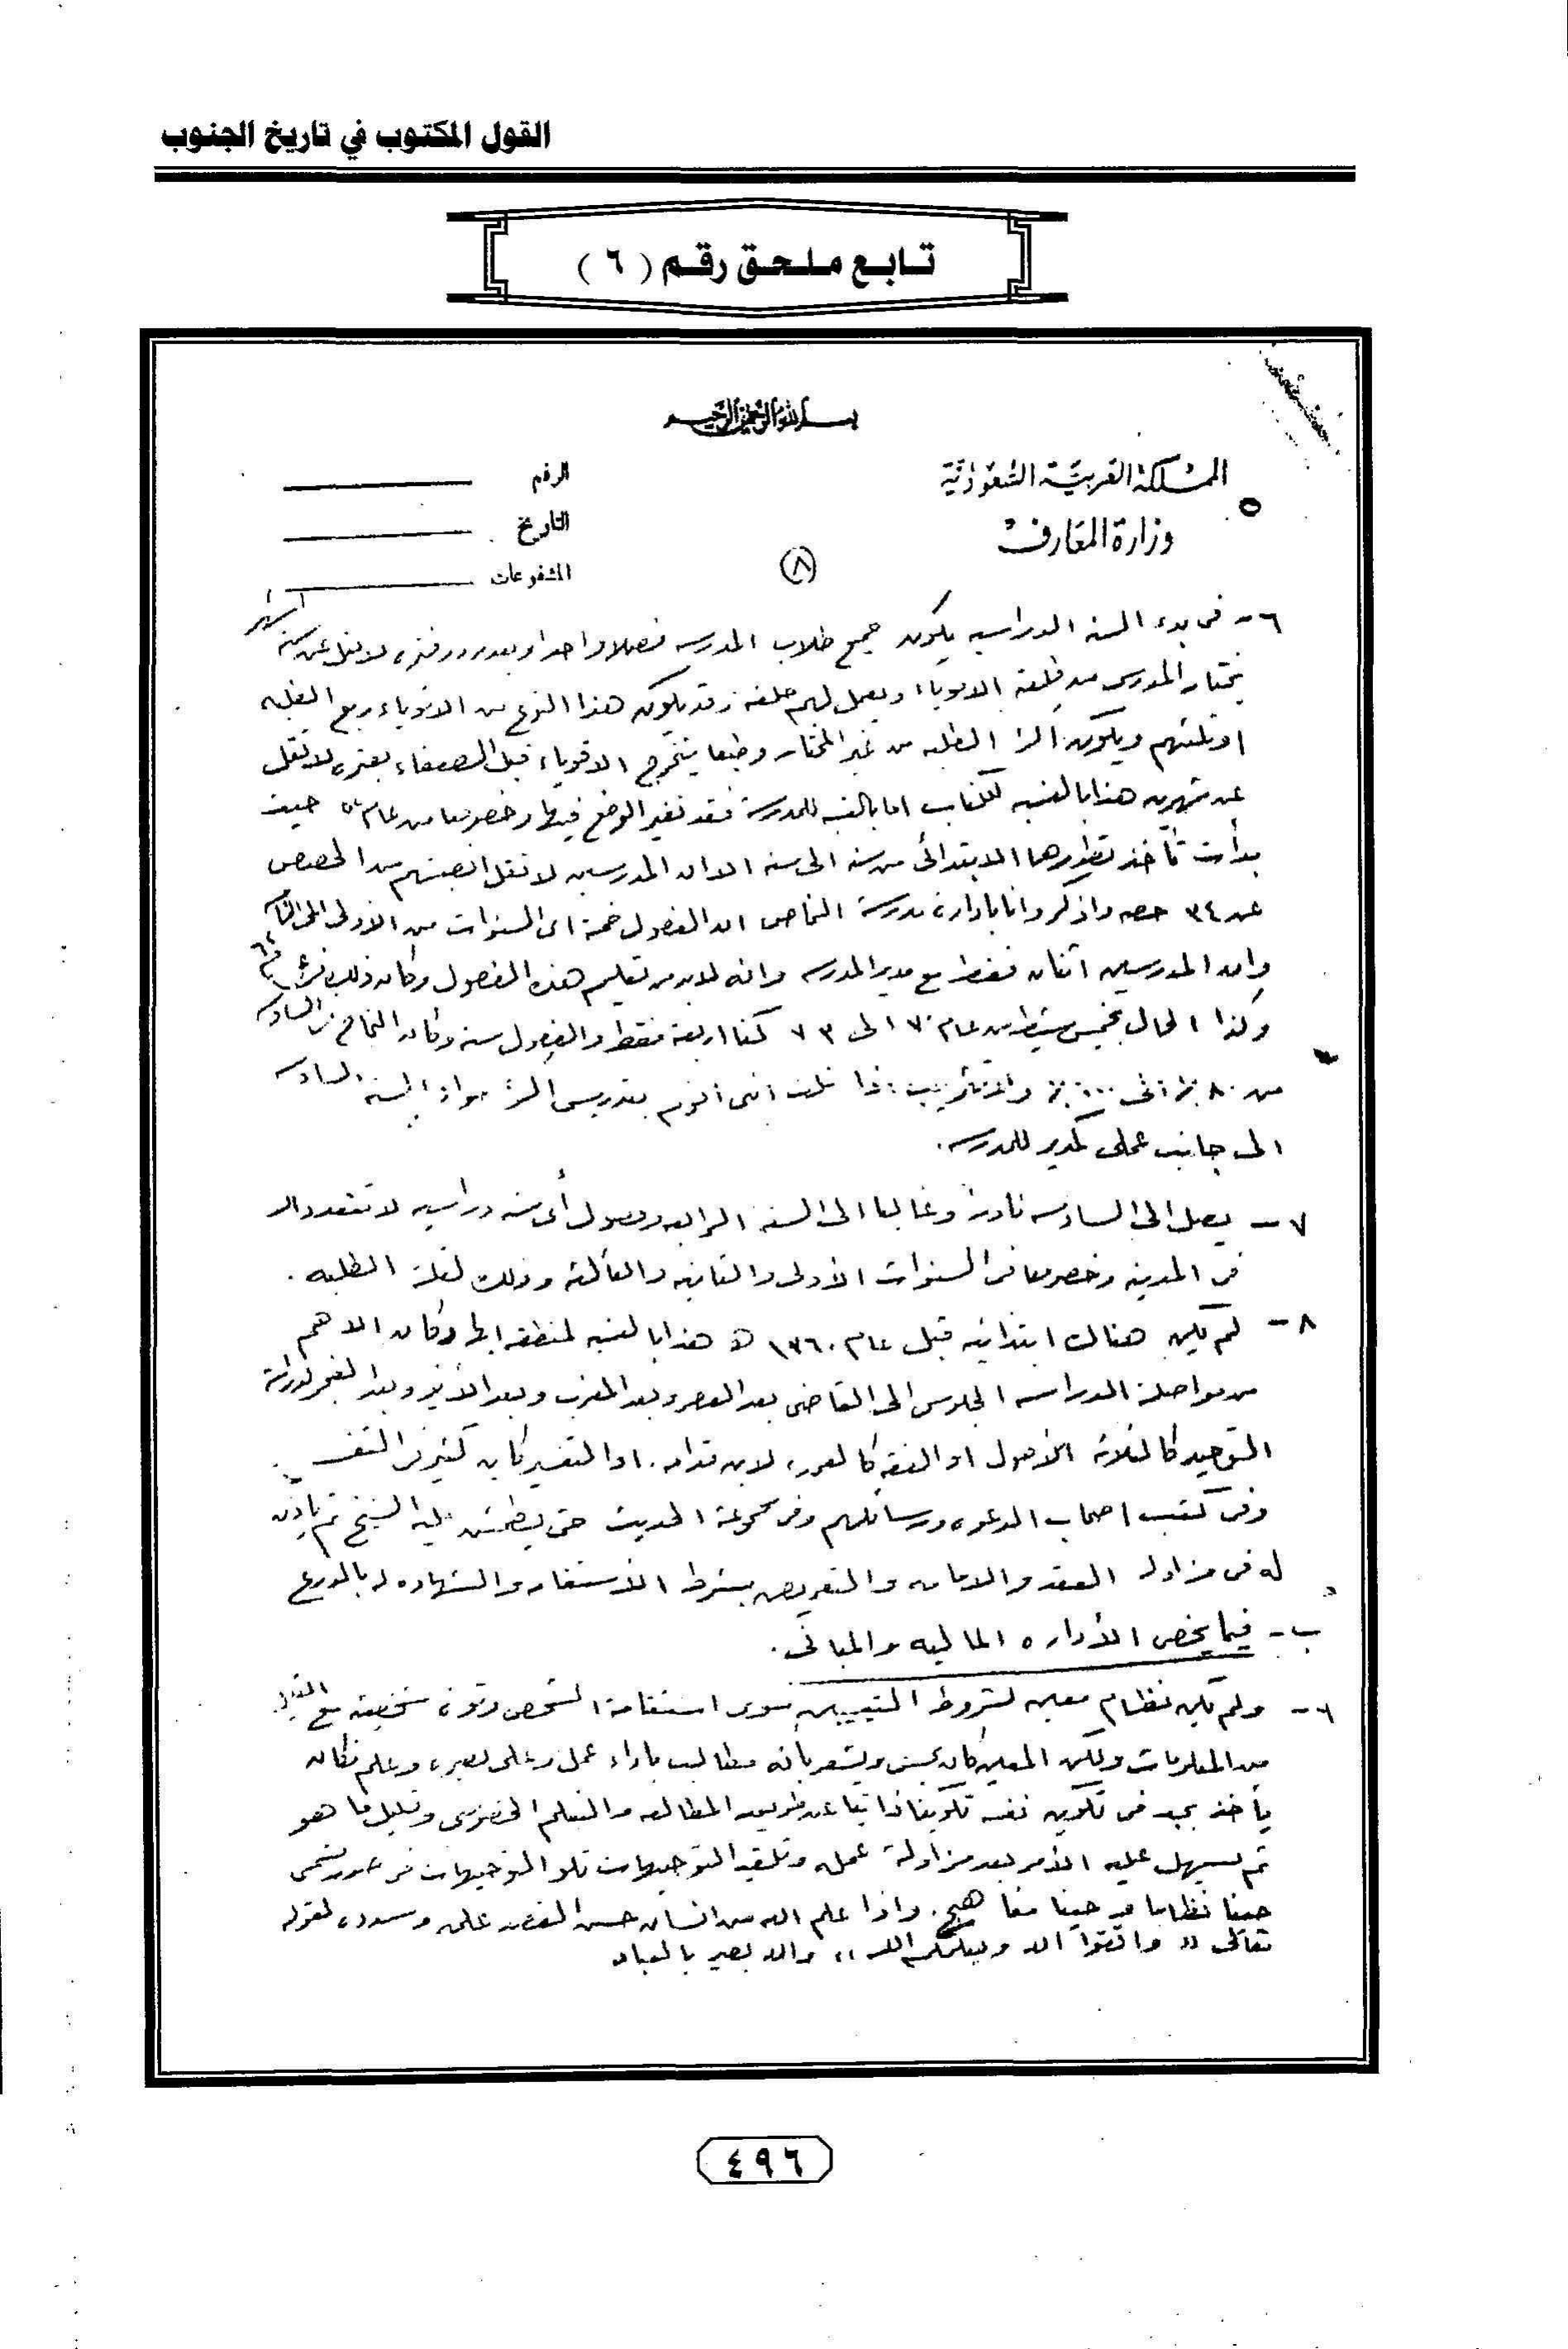 القول المكتوب في تاريخ الجنوب
تابع ملحق رقم ( ٦ )
بسم الله الرحمن الرحيم
المملكة العربية السعودية
وزارة المعارف
الرقم
التاريخ
المشفوعات
٨
٦- في بدء السنه الدراسيه يكون جميع طلاب المدرسه فصلا واحدا وبعد مرور فتره لا تقل عن ستة اشهر
يختار المدرس من طلبته الاقوياء ويعمل لهم حلقه وقد يكون هذا النوع من الاقوياء ربع الطلبه
او ثلثهم ويكون اكثر الطلبه من غير المختار وطبعا يتخرج الاقوياء قبل الضعفاء بفتره لا تقل
عن شهرين هذا بالنسبه للكتاب اما بالنسبه للمدرسة فقد تغير الوضع فيها وخصوصا من عام حيث
بدأت تأخذ تطورها الابتدائى من سنه الى سنه الا ان المدرسين لا تقل انصبتهم من الحصص
عن ٣٤ حصه واذكر وانا بادارة مدرسة النماص ان الفصول خمسة اى السنوات من الاولى الى
وان المدرسين اثنان فقط مع مدير المدرسه وانه لابد من تعليم هذه الفصول وكان ذلك في
وكذا الحال بخميس مشيط من عام ٧٠ الى ٧٣ كنا اربعة فقط والفصول سته وكان النجاح في السادسه
من ٨٠٪ الى ١٠٠٪ اننى اقوم بتدريس اكثر مواد السنه السادسه
الى جانب عملى كمدير للمدرسه.
٧ - يصل الى السادسه نادرا وغالبا الى السنه الرابعه وفصول أى سنه دراسيه لا تتعدد الا
في المدينه وخصوصا في السنوات الأولى والثانيه والثالثه وذلك لقلة الطلبه .
٨ - لم تكن هناك ابتدائيه قبل عام ١٣٦٠ ه هذا بالنسبه لمنطقة ابها وكان الاهم
من مواصلة الدراسه الجلوس الى القاضى بعد العصر وبعد المغرب وبعد الأخير وبعد الفجر لدراسة
التوحيد كالثلاثه الأصول او الفقه كالعمده لابن قدامه . او التفسير كابن كثير في التفسير
وفى كتب اصحاب الدعوه ورسائلهم وفى مجموعة الحديث حتى يطمئن اليه الشيخ ثم يأذن
له فى مزاولة العقد والامامه والتعريض بشرط الأستقامه والشهاده له بالورع
ب - فيما يخص الأداره الماليه والمبانى .
١ - ولم تكن نظام معين لشروط التعيين سوى استقامة الشخص وقوة شخصيته مع القليل
من المعلومات ولكن المعلم كان يحس ويشعر بأنه مطالب باداء عمل وعلى بصيره وعلم فكان
يأخذ بجد في تكوين نفسه تكوينا ذاتيا عن طريق المطالعه والتعلم الخصوصى وقليل ما هو
ثم يسهل عليه الأمر بعد مزاولة عمله وتلقيه التوجيهات تلو التوجيهات في صور تسمى
حينا نظاما وحينا مناهج . واذا علم الله من انسان حسن القصد علمه وسدده لقوله
تعالى « واتقوا الله ويعلمكم الله » والله بصير بالعباد
٤٩٦